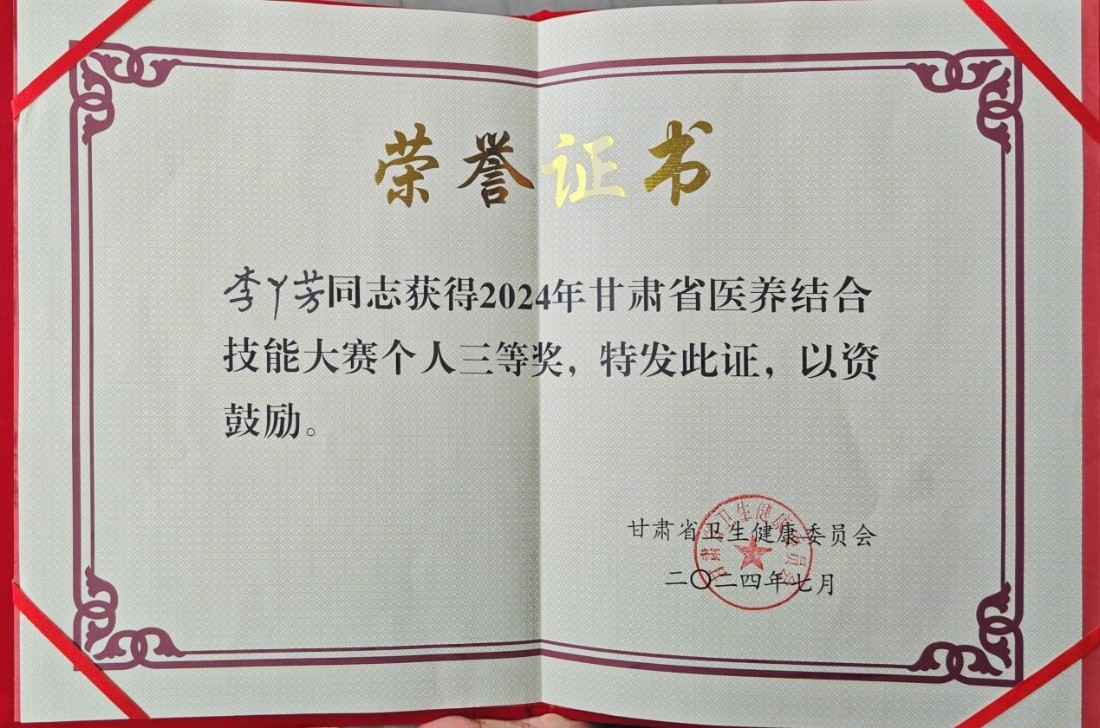 荣誉证书
李丫芳同志获得2024年甘肃省医养结合
技能大赛个人三等奖，特发此证，以资
鼓励。
甘肃省卫生健康委员会
二〇二四年七月
甘肃省卫生健康委员会